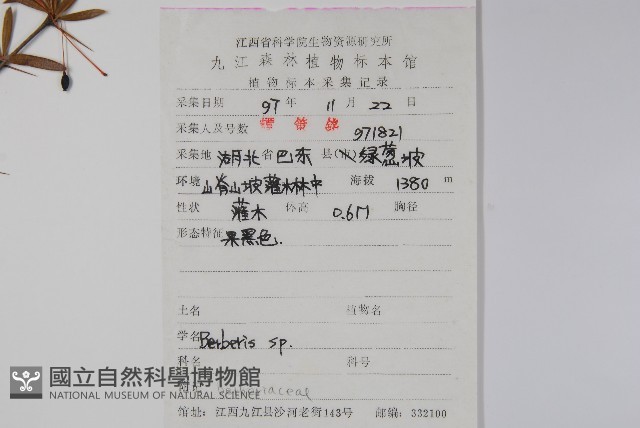 江西省科学院生物资源研究所
九江森林植物标本馆
植物标本采集记录
采集日期 97 年 11 月 22 日
采集人及号数 谭策铭 971821
采集地 湖北省巴东县(市)绿葱坡
环境 山脊山坡灌木林中 海拔 1380 m
性状 灌木 体高 0.6M 胸径
形态特征 果黑色.
土名 植物名
学名 Berberis sp.
科名 科号
國立自然科學博物館
Berberidaceae
NATIONAL MUSEUM OF NATURAL SCIENCE
馆址: 江西九江县沙河老街143号 邮编: 332100